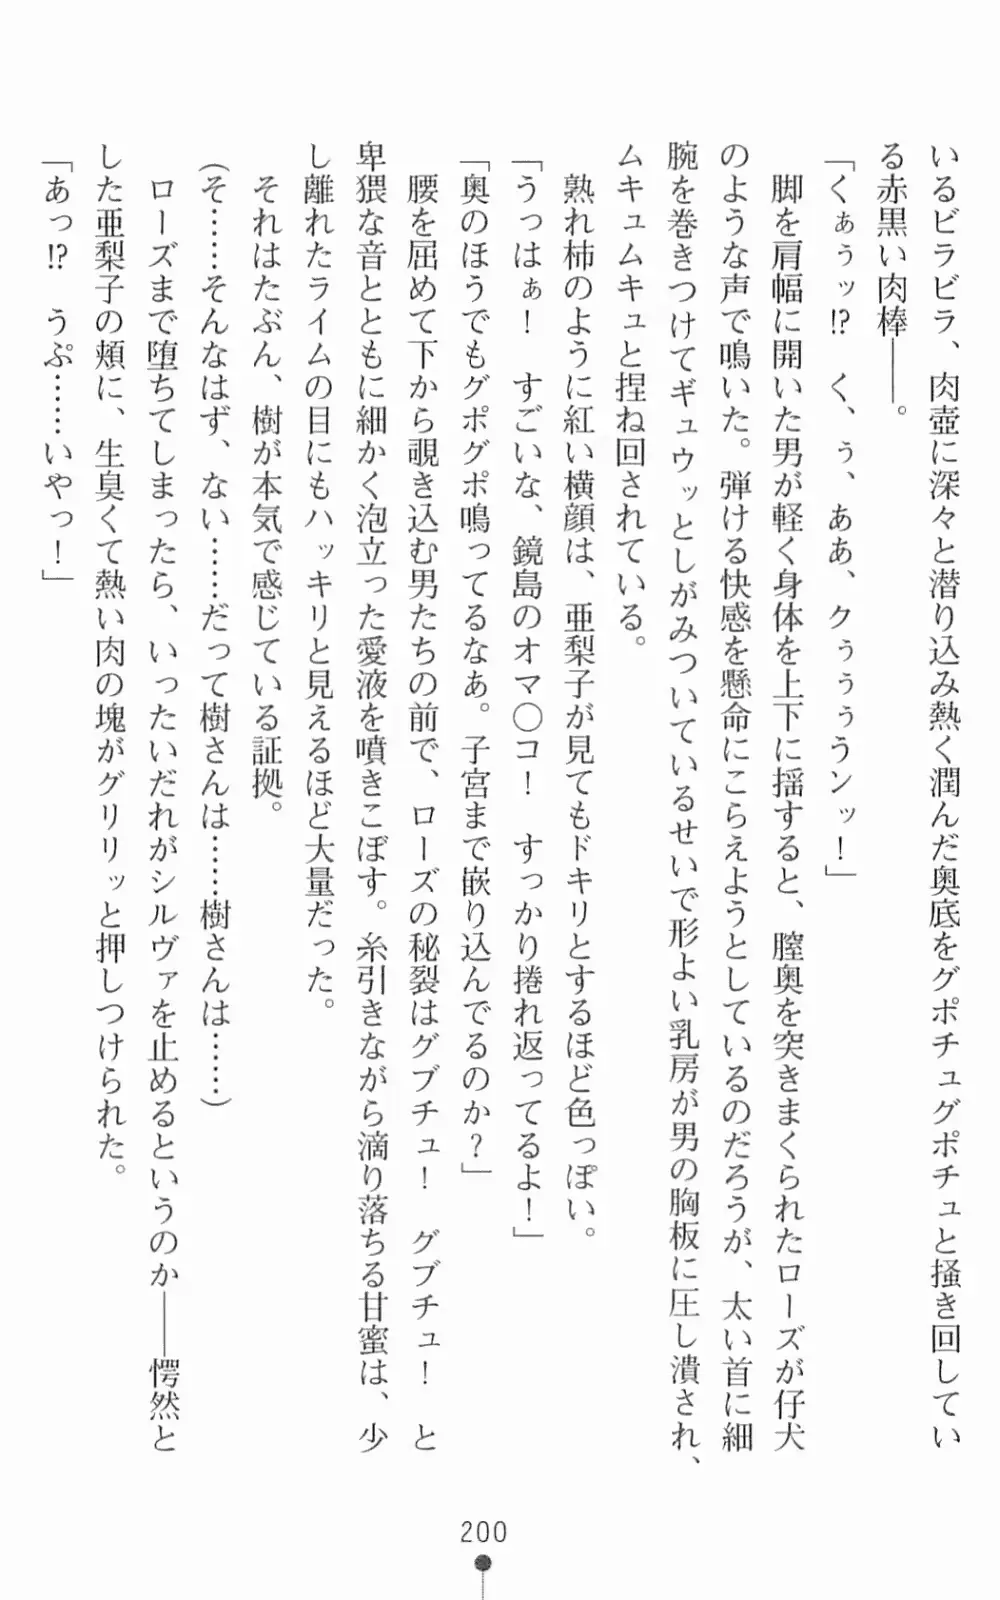 いるビラビラ、肉壺に深々と潜り込み熱く潤んだ奥底をグポチュグポチュと掻き回してい
る赤黒い肉棒――。
「くぁぅッ⁉　く、ぅ、ああ、クぅぅぅうンッ！」
　脚を肩幅に開いた男が軽く身体を上下に揺すると、膣奥を突きまくられたローズが仔犬
のような声で鳴いた。弾ける快感を懸命にこらえようとしているのだろうが、太い首に細
腕を巻きつけてギュウッとしがみついているせいで形よい乳房が男の胸板に圧し潰され、
ムキュムキュと捏ね回されている。
　熟れ柿のように紅い横顔は、亜梨子が見てもドキリとするほど色っぽい。
「うっはぁ！　すごいな、鏡島のオマ〇コ！　すっかり捲れ返ってるよ！」
「奥のほうでもグポグポ鳴ってるなぁ。子宮まで嵌り込んでるのか？」
　腰を屈めて下から覗き込む男たちの前で、ローズの秘裂はグブチュ！　グブチュ！　と
卑猥な音とともに細かく泡立った愛液を噴きこぼす。糸引きながら滴り落ちる甘蜜は、少
し離れたライムの目にもハッキリと見えるほど大量だった。
　それはたぶん、樹が本気で感じている証拠。
（そ……そんなはず、ない……だって樹さんは……樹さんは……）
　ローズまで堕ちてしまったら、いったいだれがシルヴァを止めるというのか――愕然と
した亜梨子の頬に、生臭くて熱い肉の塊がグリリッと押しつけられた。
「あっ⁉　うぷ……いやっ！」
200